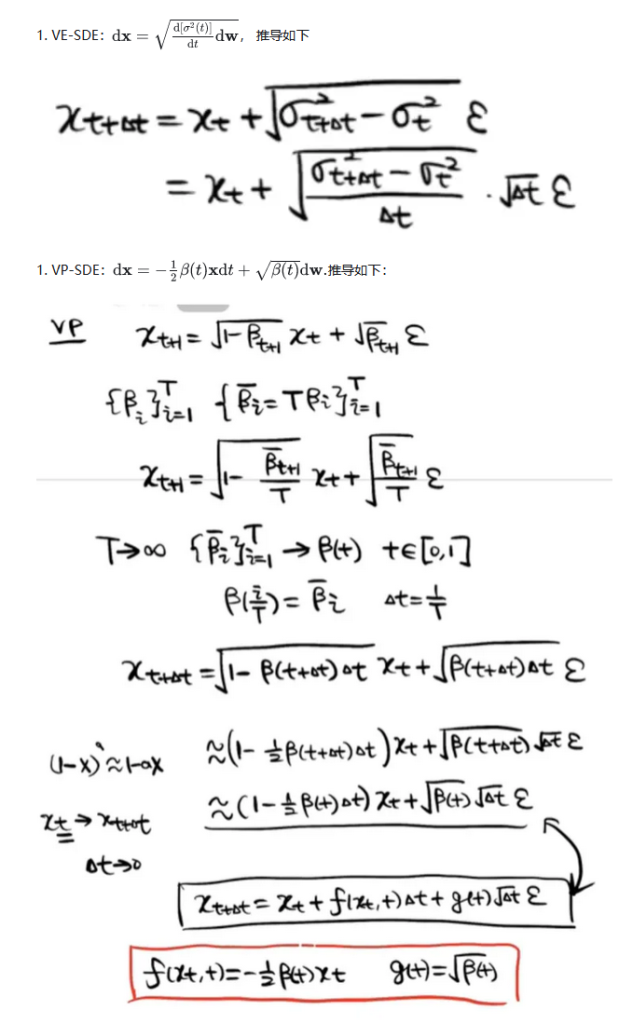 1. VE-SDE: dx = √(d[σ²(t)]/dt) dw, 推导如下
x_{t+Δt} = x_t + √(σ²_{t+Δt} - σ²_t) ε
= x_t + √((σ²_{t+Δt} - σ²_t)/Δt) · √Δt ε
1. VP-SDE: dx = -½β(t)xdt + √β(t)dw.推导如下:
VP x_{t+1} = √(1-β_{t+1}) x_t + √β_{t+1} ε
{β_i}_{i=1}^T {β̄_i = Tβ_i}_{i=1}^T
x_{t+1} = √(1 - β̄_{t+1}/T) x_t + √(β̄_{t+1}/T) ε
T→∞ {β̄_i}_{i=1}^T → β(t) t∈[0,1]
β(i/T) = β̄_i Δt = 1/T
x_{t+Δt} = √(1 - β(t+Δt)Δt) x_t + √(β(t+Δt)Δt) ε
(1-x)^a ≈ 1-ax ≈ (1 - ½β(t+Δt)Δt) x_t + √β(t+Δt) √Δt ε
x_t → x_{t+Δt} ≈ (1 - ½β(t)Δt) x_t + √β(t) √Δt ε
Δt→0
x_{t+Δt} = x_t + f(x_t,t)Δt + g(t)√Δt ε
f(x_t,t) = -½β(t)x_t g(t) = √β(t)